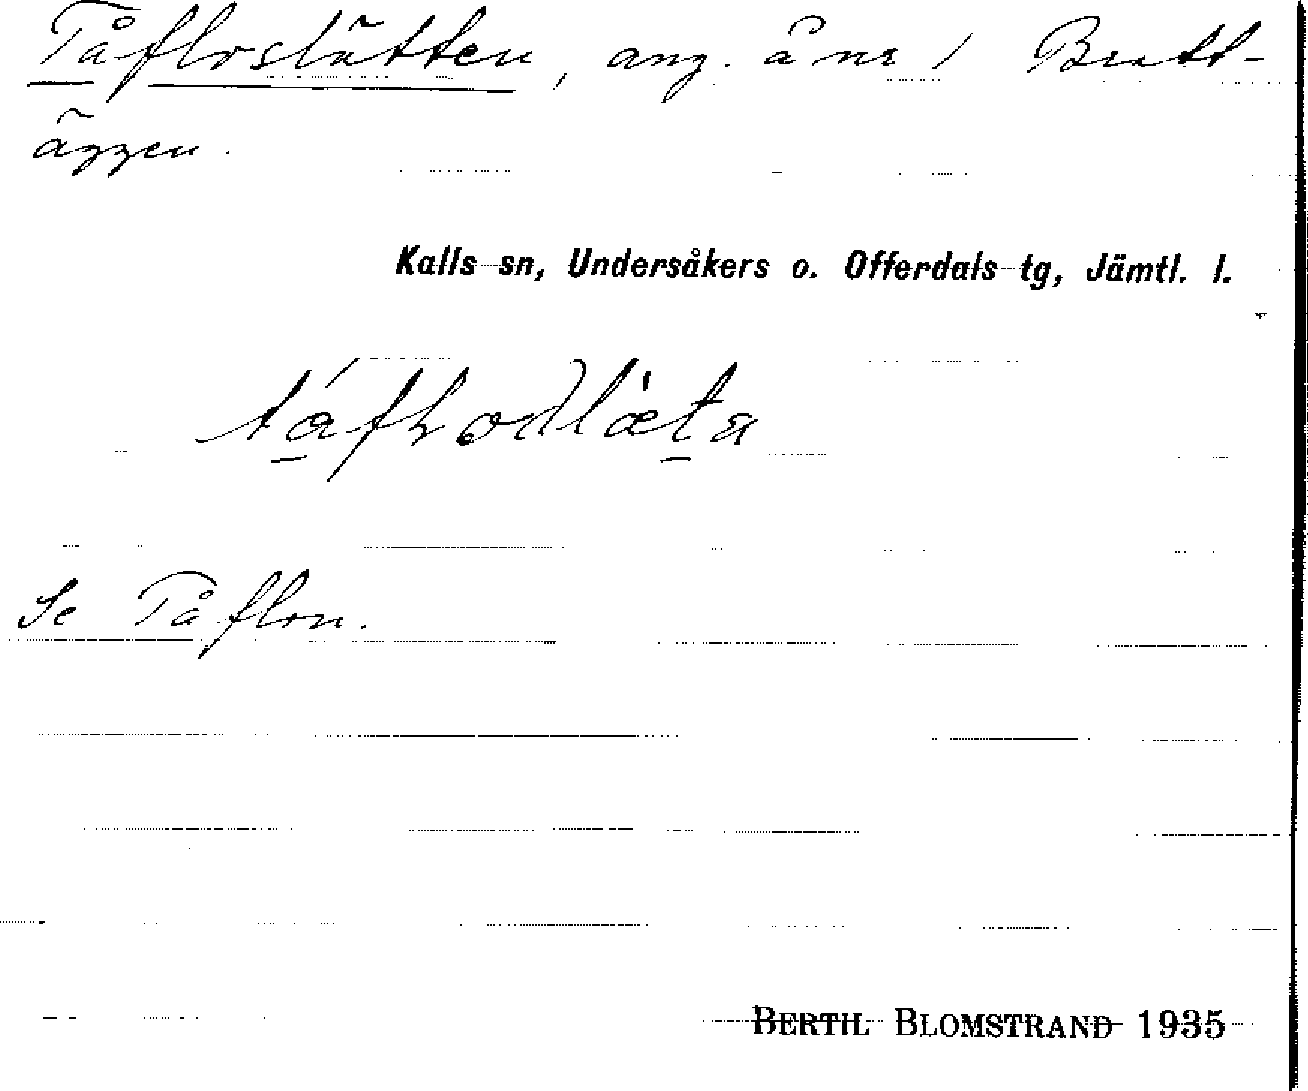 Tåfloslätten, ang. å nr 1 Bratt-
äggen.
Kalls sn, Undersåkers o. Offerdals tg, Jämtl. l.
Se Tåflon.
BERTIL BLOMSTRAND 1935